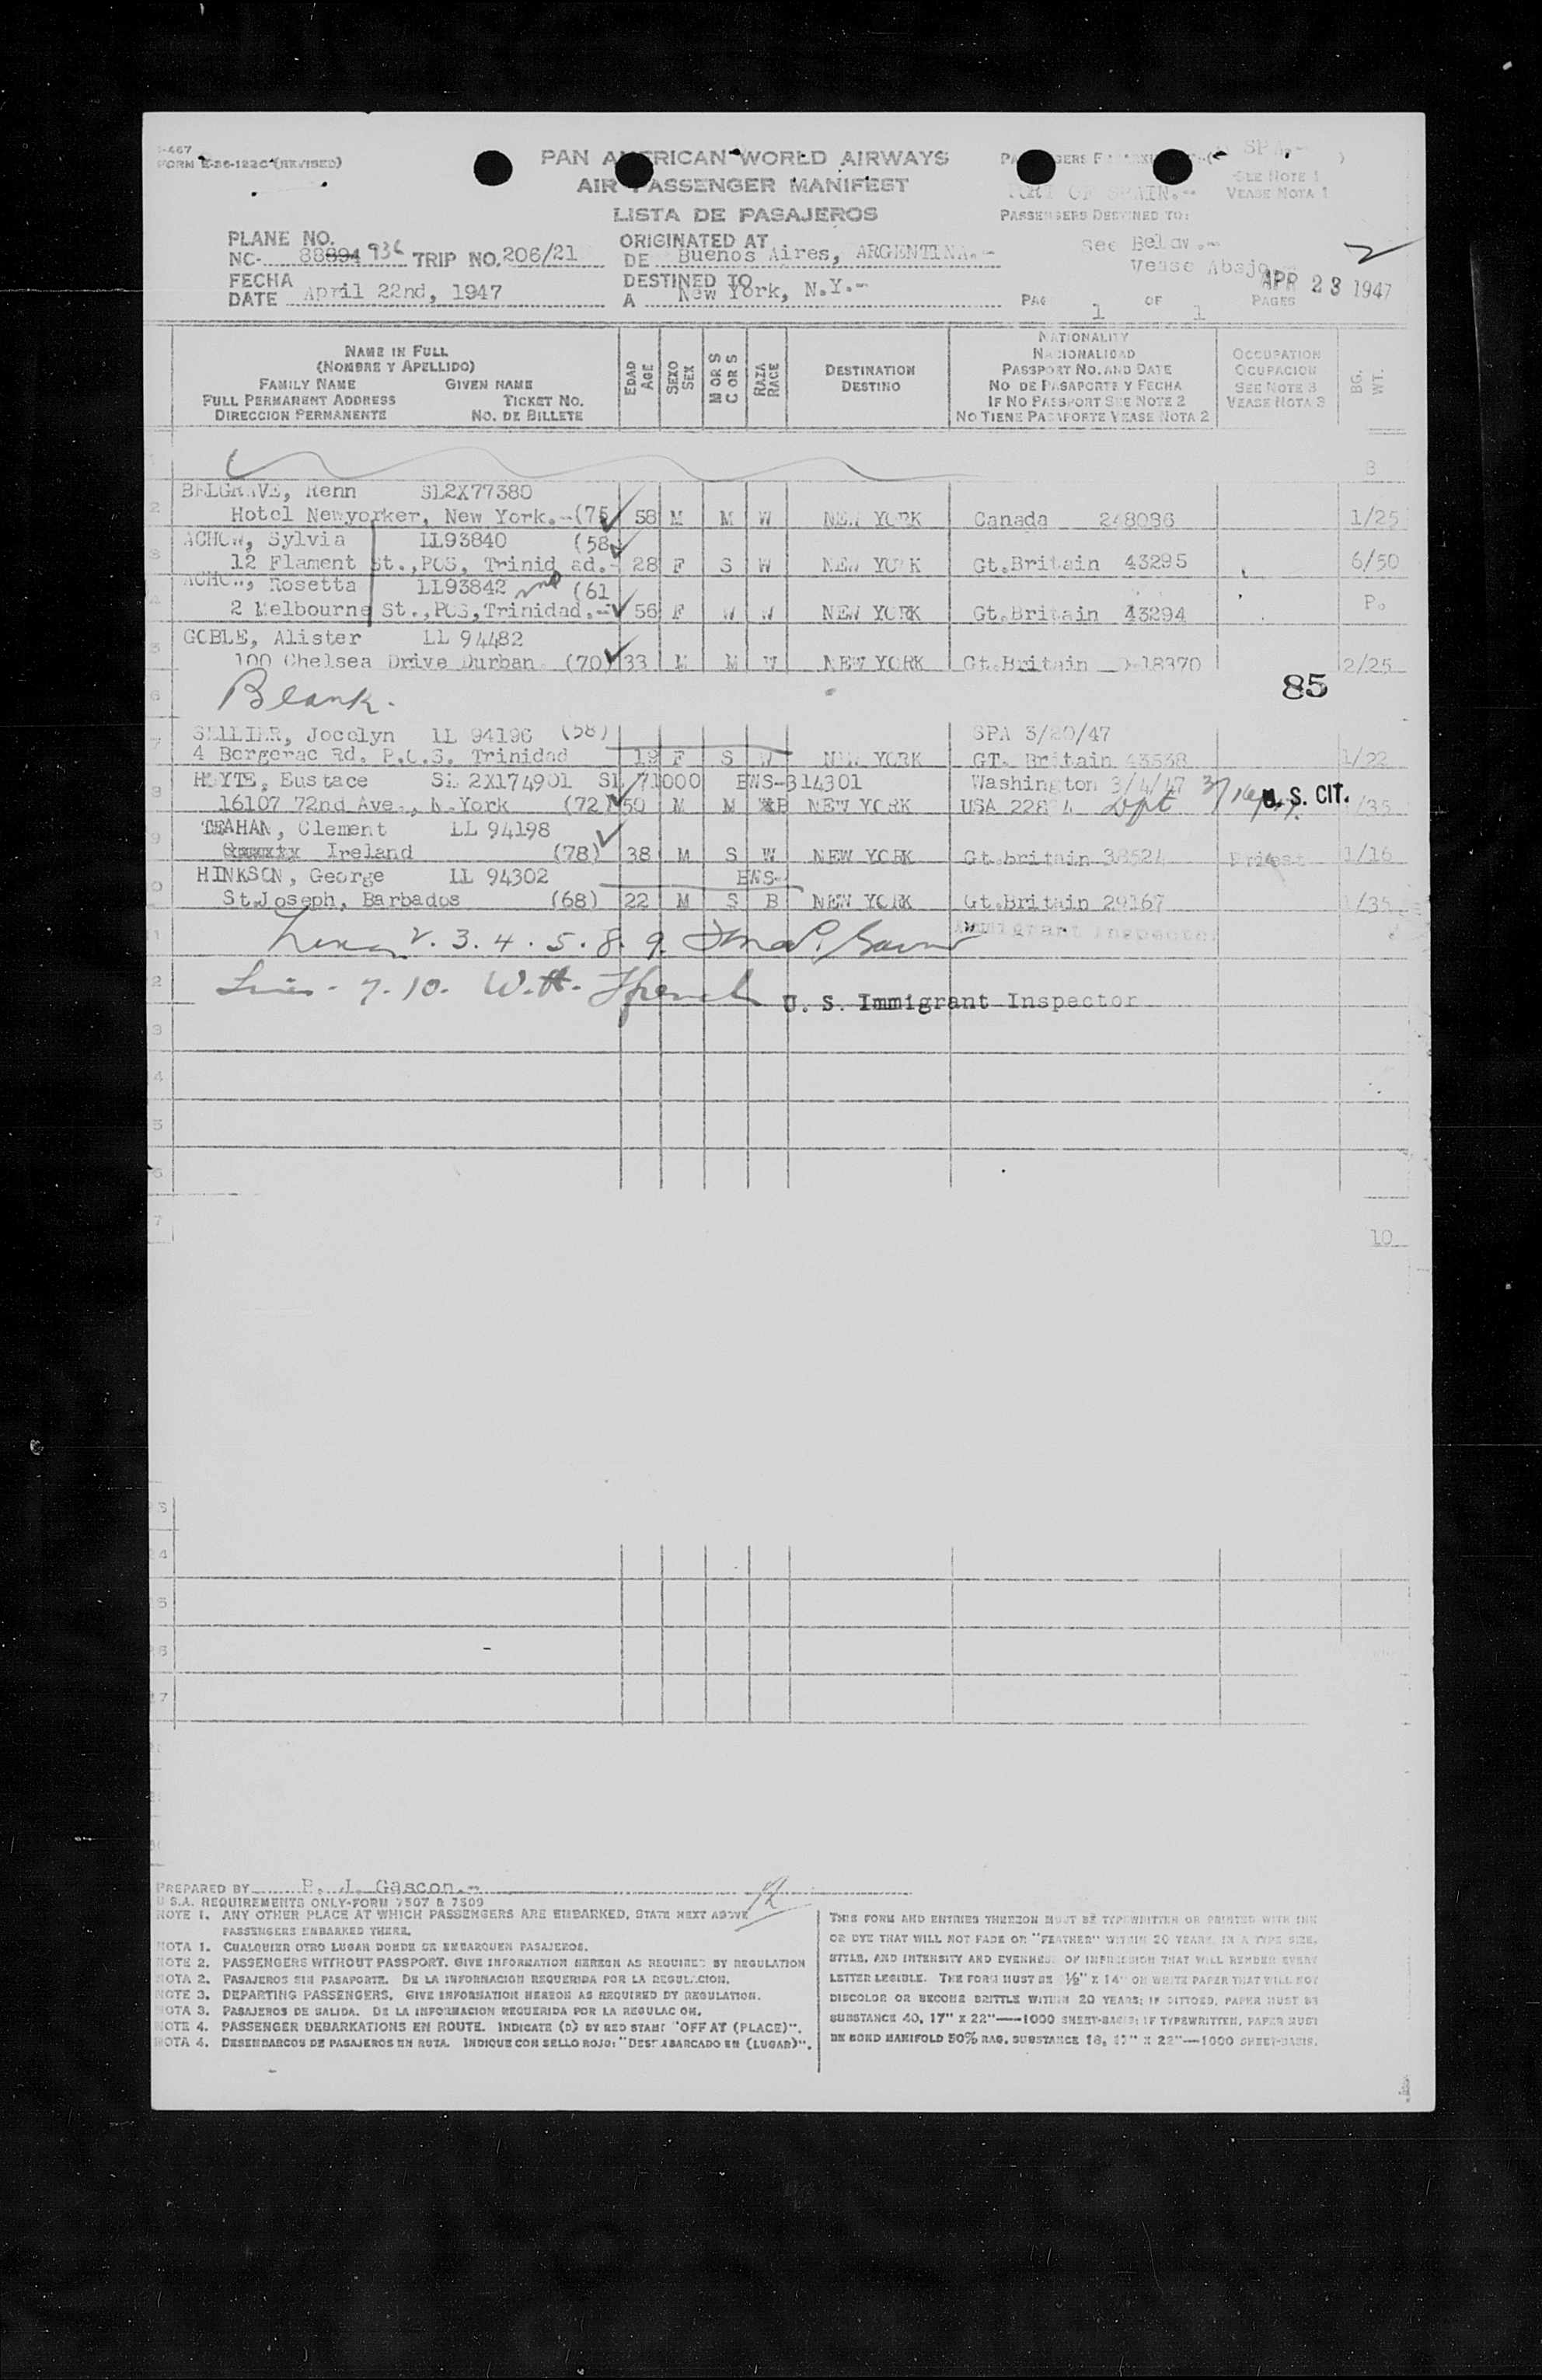 FORM E-36-122C (REVISED)
PAN AMERICAN WORLD AIRWAYS
AIR PASSENGER MANIFEST
LISTA DE PASAJEROS
SEE NOTE 1
VEASE NOTA 1
PORT OF SPAIN.--
PASSENGERS DESTINED TO:
See Below.--
Vease Abajo
PLANE NO.
NC- 88894 936 TRIP NO. 206/21
ORIGINATED AT
DE Buenos Aires, ARGENTINA.--
FECHA
DATE April 22nd, 1947
DESTINED TO
A New York, N.Y.--
APR 23 1947
PAGE 1 OF 1 PAGES
NAME IN FULL
(NOMBRE Y APELLIDO)
FAMILY NAME GIVEN NAME
FULL PERMANENT ADDRESS TICKET NO.
DIRECCION PERMANENTE NO. DE BILLETE
EDAD
AGE
SEXO
SEX
M OR S
C OR S
RAZA
RACE
DESTINATION
DESTINO
NATIONALITY
NACIONALIDAD
PASSPORT NO. AND DATE
NO DE PASAPORTE Y FECHA
IF NO PASSPORT SEE NOTE 2
NO TIENE PASAPORTE VEASE NOTA 2
OCCUPATION
OCUPACION
SEE NOTE 3
VEASE NOTA 3
BG.
WT.
BELGRAVE, Renn SL2X77380
2 Hotel Newyorker, New York.-(75 58 M M W NEW YORK Canada 248086 1/25
ACHOW, Sylvia LL93840 (58
3 12 Flament St.,POS, Trinid ad.- 28 F S W NEW YORK Gt.Britain 43295 6/50
ACHOW, Rosetta LL93842 (61
4 2 Melbourne St.,POS,Trinidad.-- 56 F W W NEW YORK Gt.Britain 43294 P.
GOBLE, Alister LL 94482
5 100 Chelsea Drive Durban (70) 33 M M W NEW YORK Gt.Britain 18370 2/25
6 Blank.
85
SELLIER, Jocelyn LL 94196 (58) SPA 3/20/47
7 4 Bergerac Rd. P.O.S. Trinidad 19 F S W NEW YORK GT. Britain 43538 1/22
HOYTE, Eustace SL 2X174901 SL 71000 BWS-314301 Washington 3/4/47
16107 72nd Ave., N.York (72) 50 M M B NEW YORK USA U. S. CIT. /35
TEAHAN, Clement LL 94198
9 Ireland (78) 38 M S W NEW YORK Gt.britain 38524 Priest 1/16
HINKSON, George LL 94302 BWS-
St.Joseph, Barbados (68) 22 M S B NEW YORK Gt.Britain 29167 1/35
Lines 2. 3. 4. 5. 8. 9.
Immigrant Inspector
Lines - 7. 10. W. H. French U. S. Immigrant Inspector
10
PREPARED BY P. J. Gascon.--
U S.A. REQUIREMENTS ONLY-FORM 7507 & 7509
NOTE 1. ANY OTHER PLACE AT WHICH PASSENGERS ARE EMBARKED, STATE NEXT ABOVE
PASSENGERS EMBARKED THERE.
NOTA 1. CUALQUIER OTRO LUGAR DONDE SE EMBARQUEN PASAJEROS.
NOTE 2. PASSENGERS WITHOUT PASSPORT. GIVE INFORMATION HEREON AS REQUIRED BY REGULATION
NOTA 2. PASAJEROS SIN PASAPORTE. DE LA INFORMACION REQUERIDA POR LA REGULACION.
NOTE 3. DEPARTING PASSENGERS. GIVE INFORMATION HEREON AS REQUIRED BY REGULATION.
NOTA 3. PASAJEROS DE SALIDA. DE LA INFORMACION REQUERIDA POR LA REGULACION.
NOTE 4. PASSENGER DEBARKATIONS EN ROUTE. INDICATE (D) BY RED STAMP "OFF AT (PLACE)".
NOTA 4. DESEMBARCOS DE PASAJEROS EN RUTA. INDIQUE CON SELLO ROJO: "DESEMBARCADO EN (LUGAR)".
THIS FORM AND ENTRIES THEREON MUST BE TYPEWRITTEN OR PRINTED WITH INK
OR DYE THAT WILL NOT FADE OR "FEATHER" WITHIN 20 YEARS, IN A TYPE SIZE,
STYLE, AND INTENSITY AND EVENNESS OF IMPRESSION THAT WILL RENDER EVERY
LETTER LEGIBLE. THE FORM MUST BE ½" X 14" ON WHITE PAPER THAT WILL NOT
DISCOLOR OR BECOME BRITTLE WITHIN 20 YEARS; IF DITTOED, PAPER MUST BE
SUBSTANCE 40, 17" X 22"—1000 SHEET-BASIS; IF TYPEWRITTEN, PAPER MUST
BE BOND MANIFOLD 50% RAG. SUBSTANCE 16, 17" X 22"—1000 SHEET-BASIS.